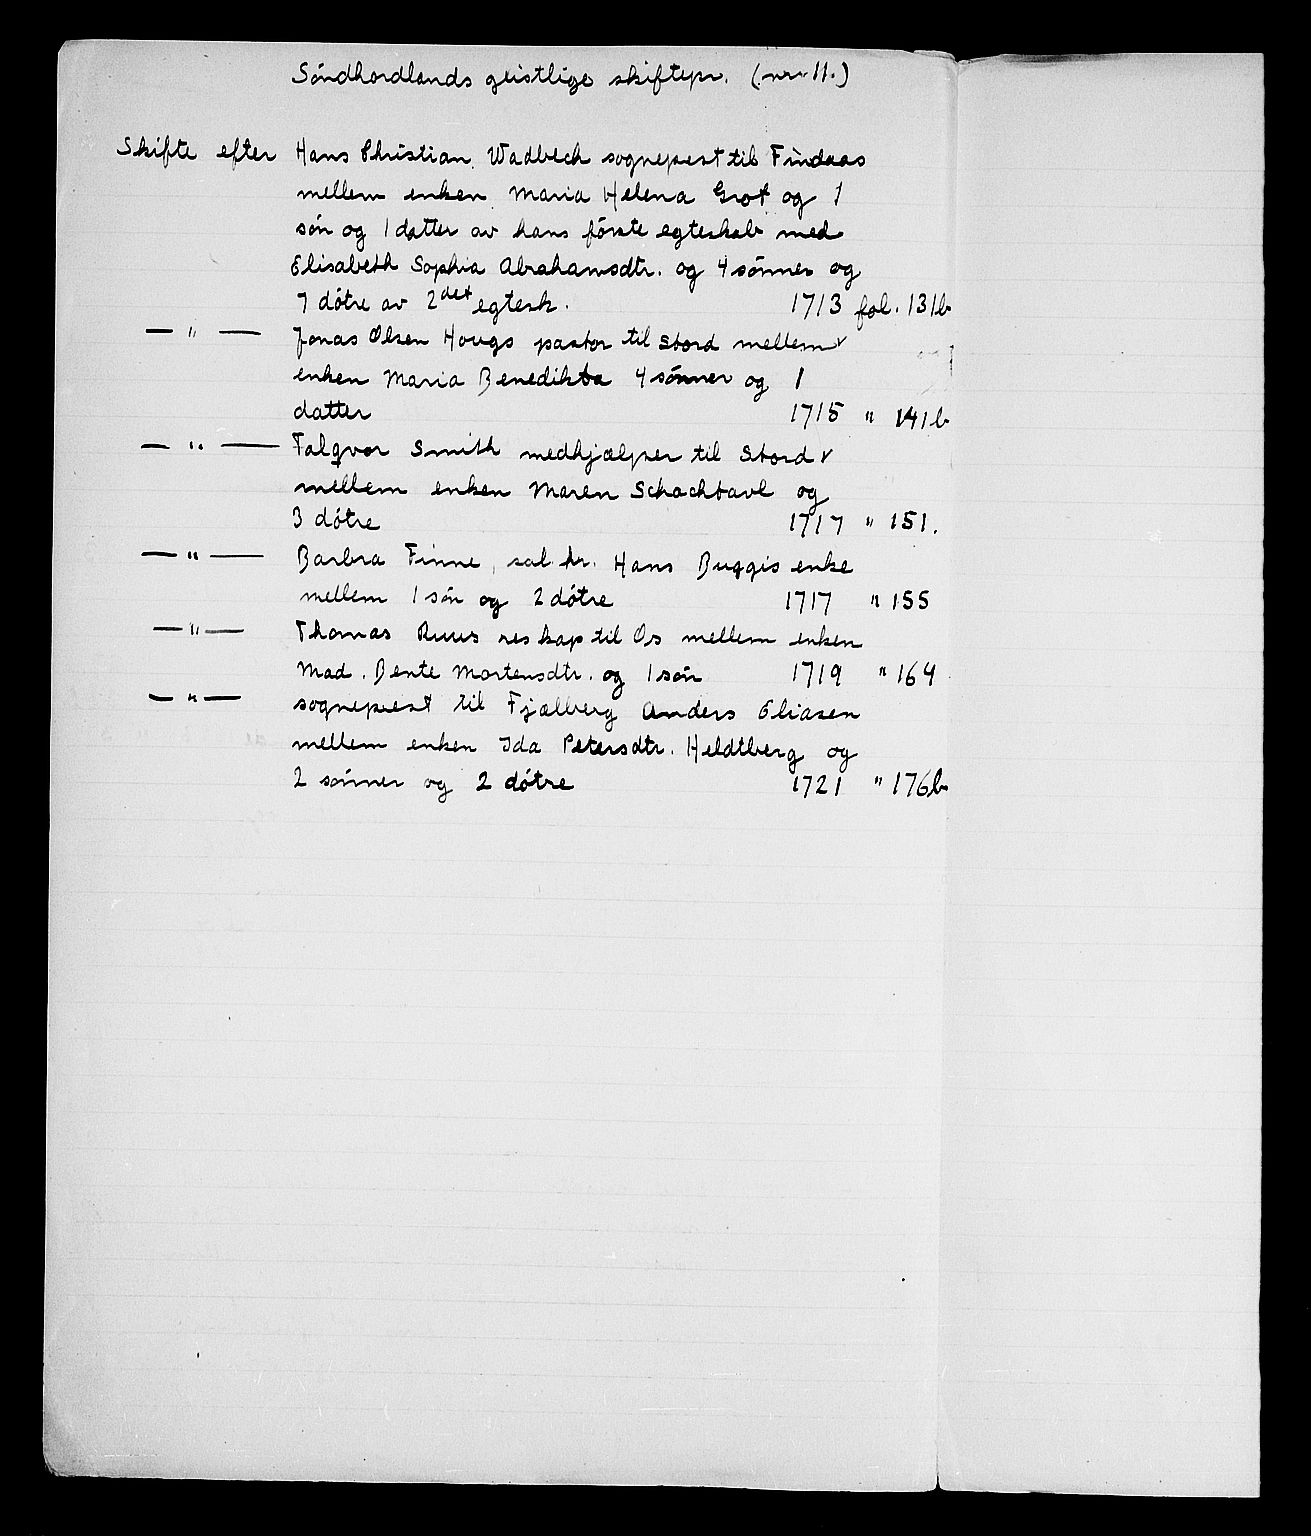 Söndhordlands geistlige skiftepr. (nr. 11.)
Skifte efter Hans Christian Wadbech sogneprest til Findaas
mellem enken Maria Helena Grot og 1
sön og 1 datter av hans förste egteskab med
Elisabeth Sophia Abrahamsdtr. og 4 sönner og
7 dötre av 2det egtesk. 1713 fol. 131b
— " — Jonas Olsen Hougs pastor til Stord mellem
enken Maria Benedikta 4 sönner og 1
datter 1715 " 141b
— " — Falqvor Smith medhjælper til Stord
mellem enken Maren Schachtavl og
3 dötre 1717 " 151.
— " — Barbra Finne, sal. hr. Hans Buggis enke
mellem 1 sön og 2 dötre 1717 " 155
— " — Thomas Ruus res kap til Os mellem enken
Mad. Bente Mortensdtr. og 1 sön 1719 " 164
— " — sogneprest til Fjælberg Anders Eliasen
mellem enken Ida Petersdtr. Heldtberg og
2 sönner og 2 dötre 1721 " 176b